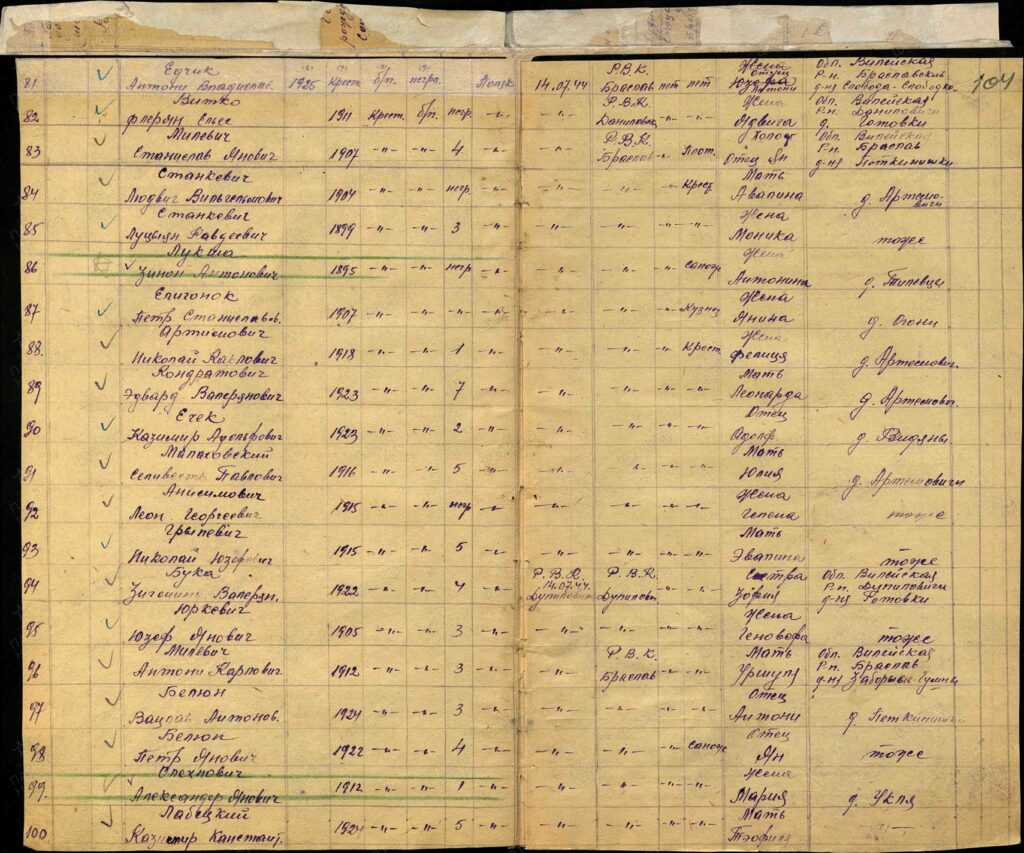 104
(6) (7) (8) (9)
81 Едчик Антони Владислав. 1925 Крест. б/п. негра. Польк. 14.07.44 Р.В.К. Браслав нет нет Отец Антони Обл. Вилейская Р-н. Браславский д-ня Слобода-Слободка
82 Витко Флерян 1911 Крест. б/п. негр. -"- -"- Р.В.К. -"- -"- Жена Ядвига Обл. Вилейская Р-н. д. Готовки
83 Милевич Станислав Янович 1907 -"- -"- 4 -"- -"- Р.В.К. Браслав -"- Плот. Холост Отец Ян Обл. Вилейская Р-н. Браслав д-ня Петкинишки
84 Станкевич Людвиг Вильгельмович 1904 -"- -"- негр. -"- -"- -"- -"- Крест. Мать д. Артемовичи
85 Станкевич Луцыян 1899 -"- -"- 3 -"- -"- -"- -"- -"- Жена Моника тоже
86 Лукша Зинон Антонович 1895 -"- -"- негр. -"- -"- -"- -"- сапож. Жена Антонина
87 Епигонок Петр Станиславов. 1907 -"- -"- -"- -"- -"- -"- -"- Кузнец Жена Янина д. Огони
88. Николай Карлович 1918 -"- -"- 1 -"- -"- -"- -"- Крест. Жена Фелиця д. Артемович.
89 Кондратович Эдвард Валерянович 1923 -"- -"- 7 -"- -"- -"- -"- -"- Мать Леонарда д. Артемович.
90 Ечек Казимир Адольфович 1923 -"- -"- 2 -"- -"- -"- -"- -"- Отец Адольф д. Видяны
91 Малаховский Селивестр Павлович 1916 -"- -"- 5 -"- -"- -"- -"- -"- Мать Юлия д. Артемовичи
92 Анисимович Леон Георгеевич 1915 -"- -"- негр -"- -"- -"- -"- -"- Жена Гелена тоже
93 Грылевич Николай Юзефович 1915 -"- -"- 5 -"- -"- -"- -"- -"- Мать Эвалина тоже
94 Бука Валерян. 1922 -"- -"- 4 -"- Р.В.К. 14.07.44 Р.В.К. -"- -"- Сестра Зофия Обл. Вилейская Р-н. Дуниловичи д-ня Готовки
95 Юркевич Юзеф Янович 1905 -"- -"- 3 -"- -"- -"- -"- -"- Жена Геновефа тоже
96 Милевич Антони Карлович 1912 -"- -"- 3 -"- -"- Р.В.К. Браслав -"- -"- Мать Уршуля Обл. Вилейская Р-н. Браслав д-ня
97 Белюн Вацлав Антонов. 1924 -"- -"- 3 -"- -"- -"- -"- -"- Отец Антони д. Петкинишки
98 Белюн Петр Янович 1922 -"- -"- 4 -"- -"- -"- -"- сапож Отец Ян тоже
99. Олехнович Александер Янович 1912 -"- -"- 1 -"- -"- -"- -"- -"- Жена Мария д. Укля
100 Лабецкий Казимир Канстант. 1924 -"- -"- 5 -"- -"- -"- -"- -"- Мать Тэофиля -"-